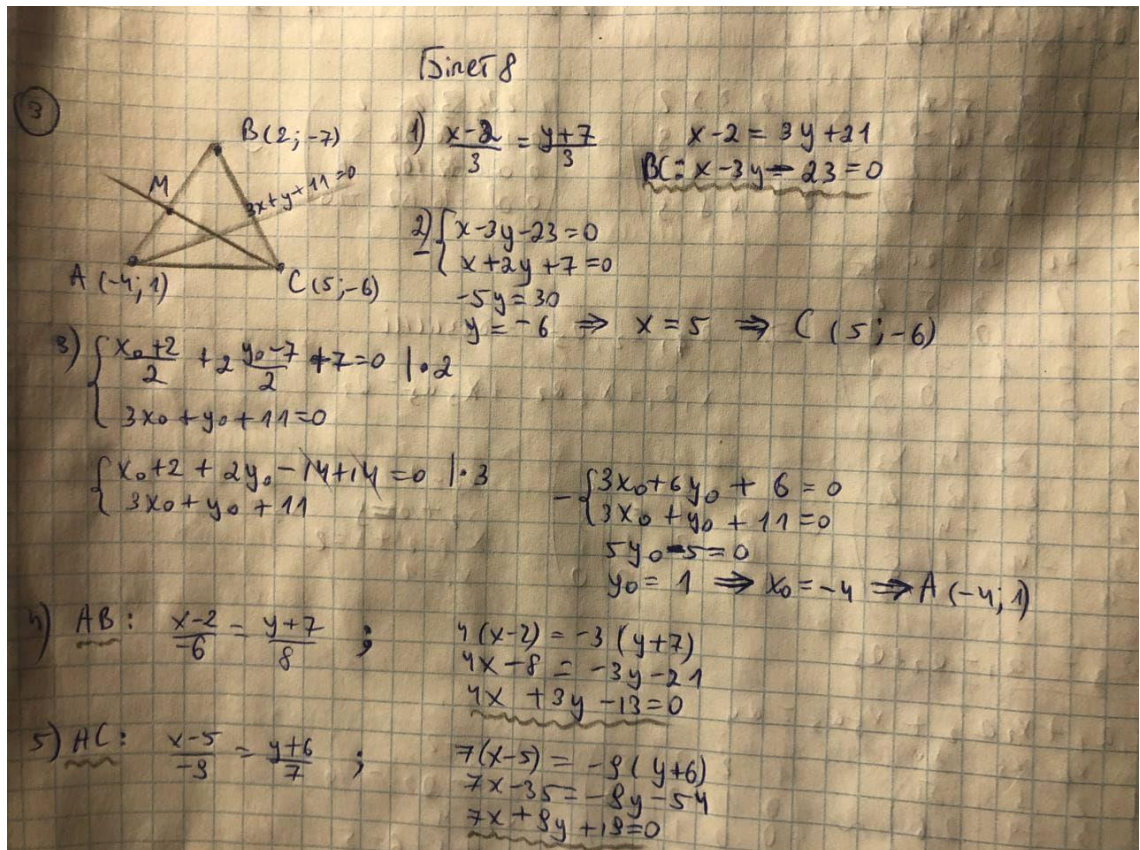 Білет 8
3
B(2; -7)
M
3x+y+11=0
A(-4; 1)
C(5; -6)
1) (x-2)/3 = (y+7)/3
x-2 = 3y+21
BC: x-3y-23=0
2) - { x-3y-23=0
x+2y+7=0
-5y=30
y=-6 ⇒ x=5 ⇒ C(5; -6)
3) { (x₀+2)/2 + 2 (y₀-7)/2 +7=0 |·2
3x₀+y₀+11=0
{ x₀+2+2y₀-14+14=0 |·3
3x₀+y₀+11
- { 3x₀+6y₀+6=0
3x₀+y₀+11=0
5y₀-5=0
y₀=1 ⇒ x₀=-4 ⇒ A(-4; 1)
4) AB: (x-2)/-6 = (y+7)/8 ;
4(x-2) = -3(y+7)
4x-8 = -3y-21
4x+3y-13=0
5) AC: (x-5)/-9 = (y+6)/7 ;
7(x-5) = -9(y+6)
7x-35=-9y-54
7x+9y+19=0